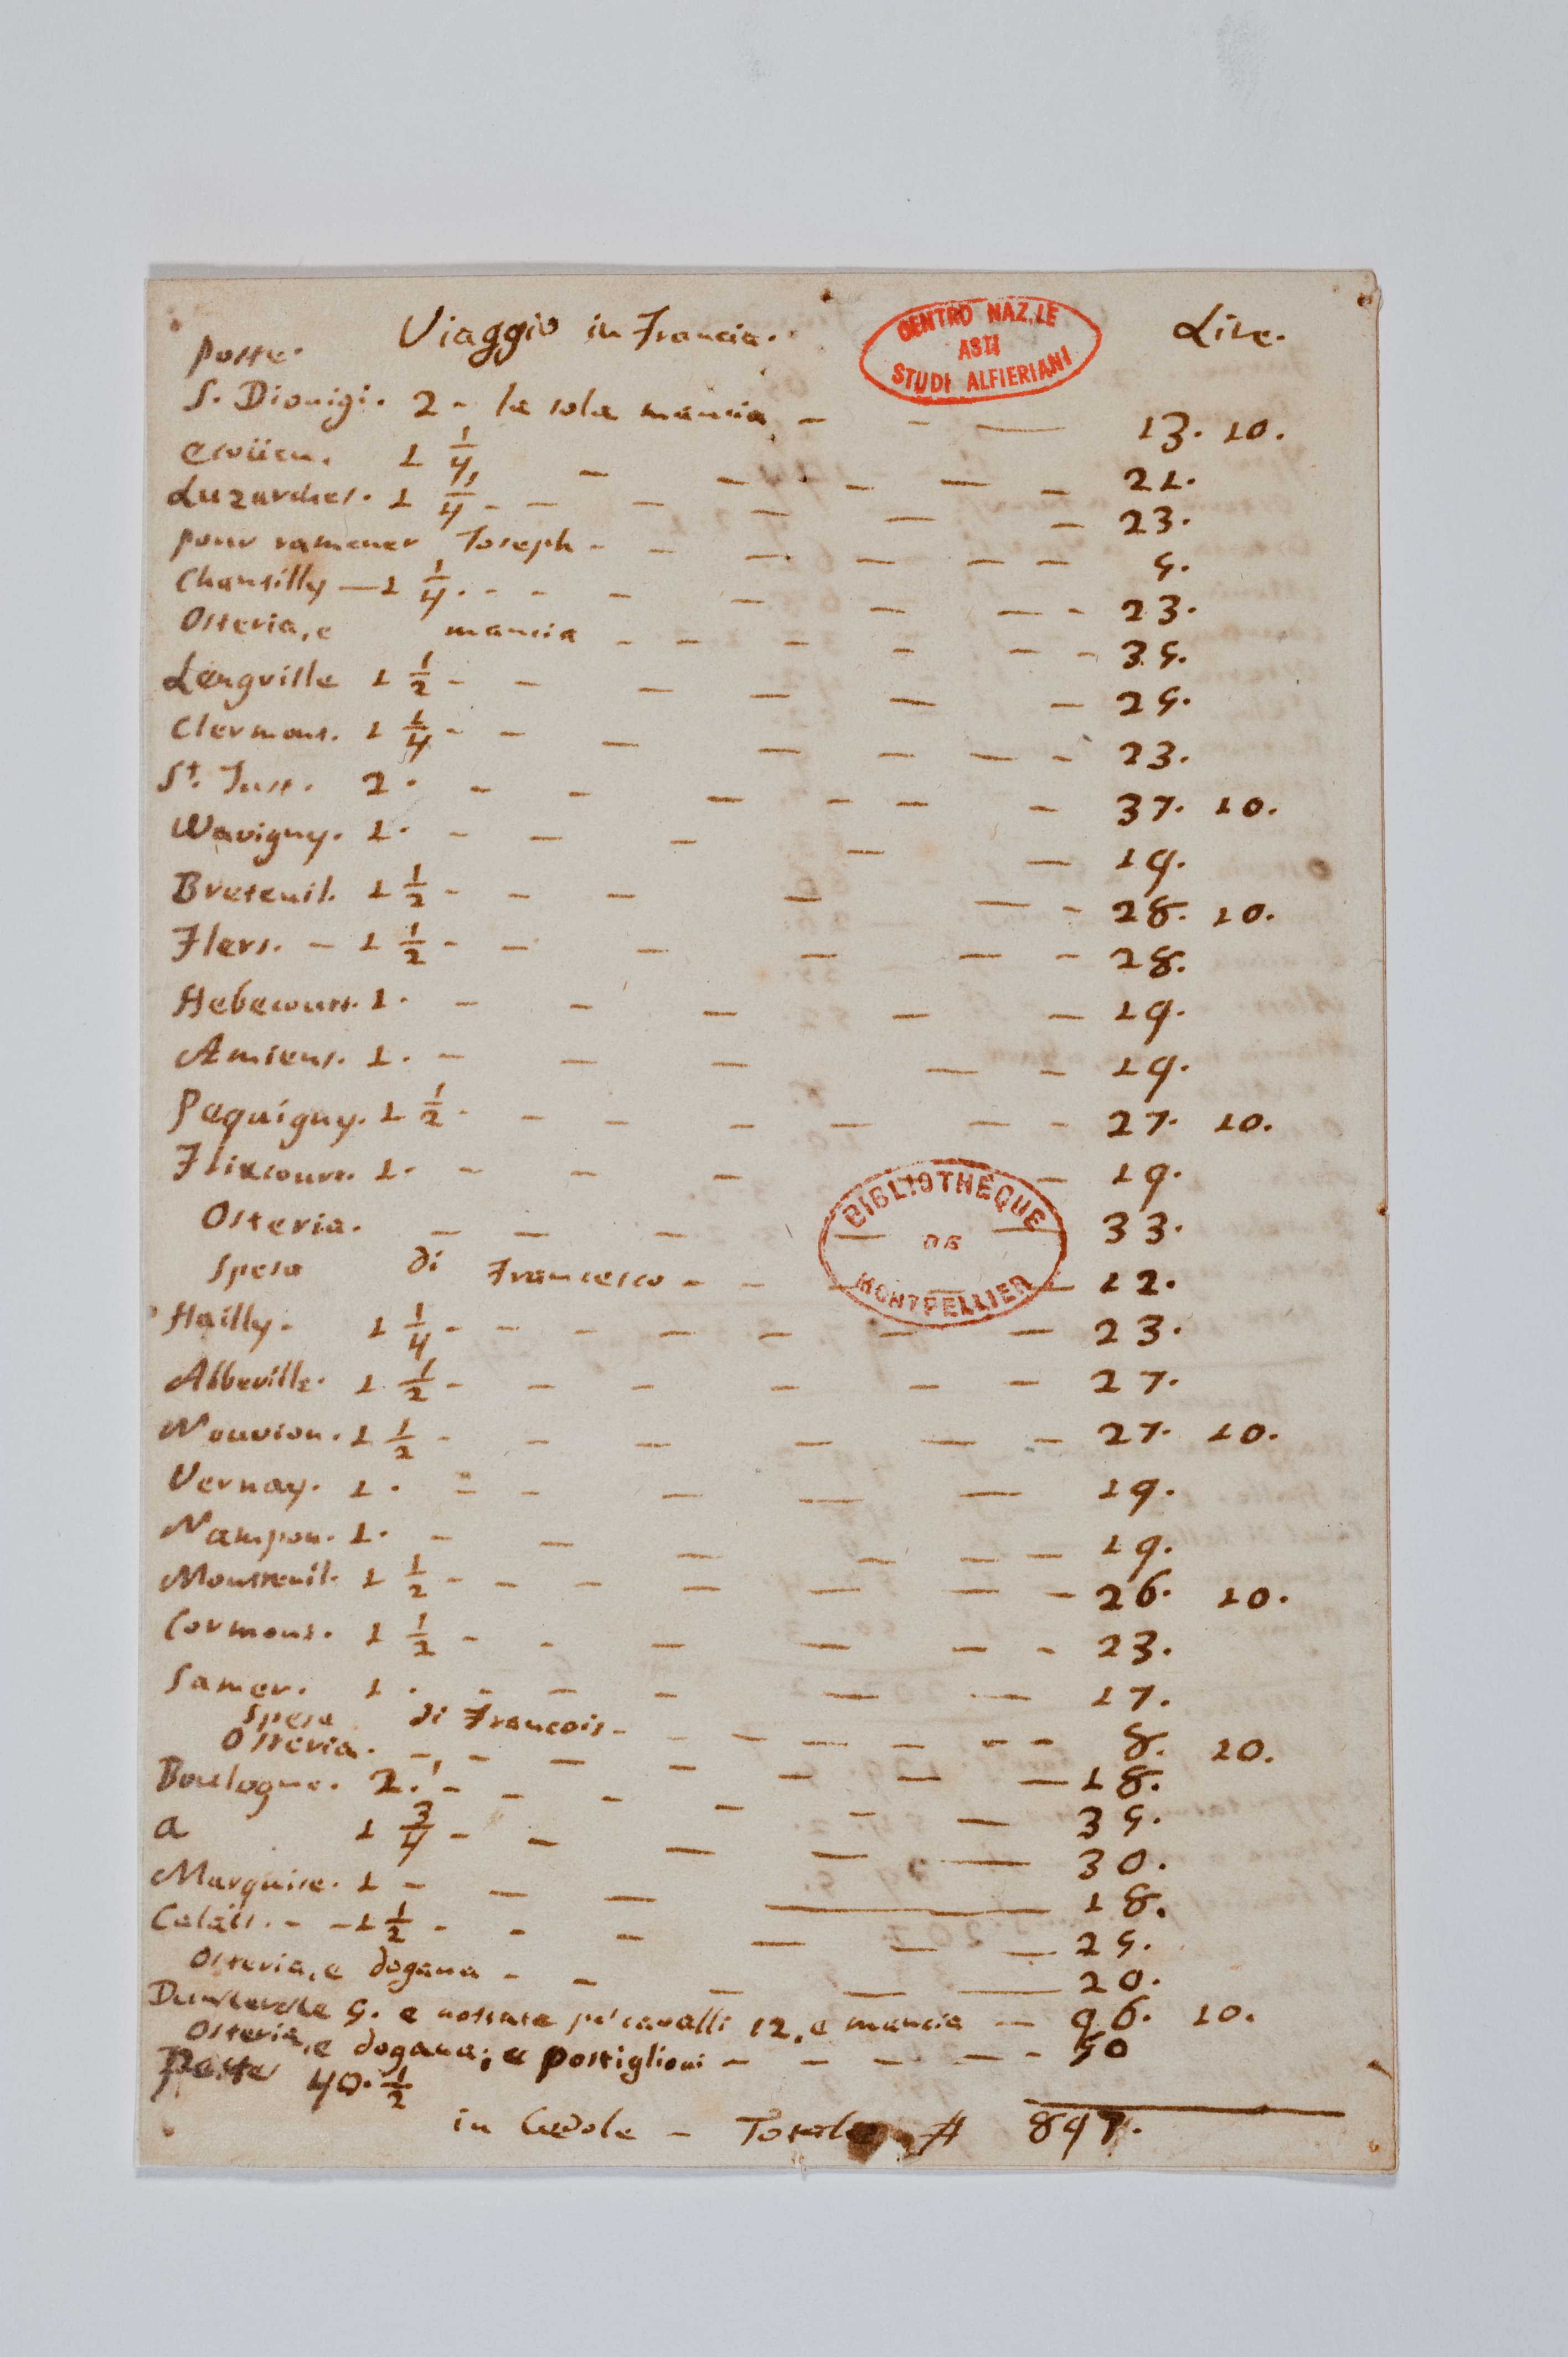 Viaggio in Francia. Lire.
poste.
S. Dionigi. 2 - la sola mancia - - — 13. 10.
ecoüen. 1 1/4 - - - - - 21.
Luzarches. 1 1/4 - - - - - - 23.
pour ramener Joseph - - - - - - 5.
Chantilly — 1 1/4 - - - - - - - 23.
Osteria, e mancia - - - - - - 35.
Lengville 1 1/2 - - - - - - 25.
Clermont. 1 1/4 - - - - - - 23.
St. Just. 2. - - - - - - 37. 10.
Wavigny. 1. - - - - - 19.
Breteuil. 1 1/2 - - - - - - 28. 10.
Flers. - 1 1/2 - - - - - - 28.
Hebecourt. 1. - - - - - 19.
Amiens. 1. - - - - - 19.
Pequigny. 1 1/2 - - - - - - 27. 10.
Flixcourt. 1. - - - - 19.
Osteria. - - - - - 33.
Spesa di Francesco - - - - 12.
Hailly. 1 1/4 - - - - - - - 23.
Abbeville. 1 1/2 - - - - - - 27.
Nouvion. 1 1/2 - - - - - - 27. 10.
Vernay. 1. - - - - - 19.
Nampon. 1. - - - - - - 19.
Montreuil. 1 1/2 - - - - - - - 26. 10.
Cormont. 1 1/2 - - - - - - 23.
Samer. 1. - - - - - 17.
Spesa di Francois - - - - - - - 8. 10.
Osteria. - - - - - - - 18.
Boulogne. 2. - - - - - - 35.
a 1 3/4 - - - - - 30.
Marquise. 1 - - - — 18.
Calais. - - 1 1/2 - - - - - - 25.
Osteria, e dogana - - - - — 20.
Dunkerke 5. e pe' cavalli 12, e mancia — 96. 10.
Osteria, e dogana, e postiglioni - - - - - 50
Poste 40. 1/2
in Cedole - Totale # 897.
CENTRO NAZ.LE
ASTI
STUDI ALFIERIANI
BIBLIOTHEQUE
DE
MONTPELLIER